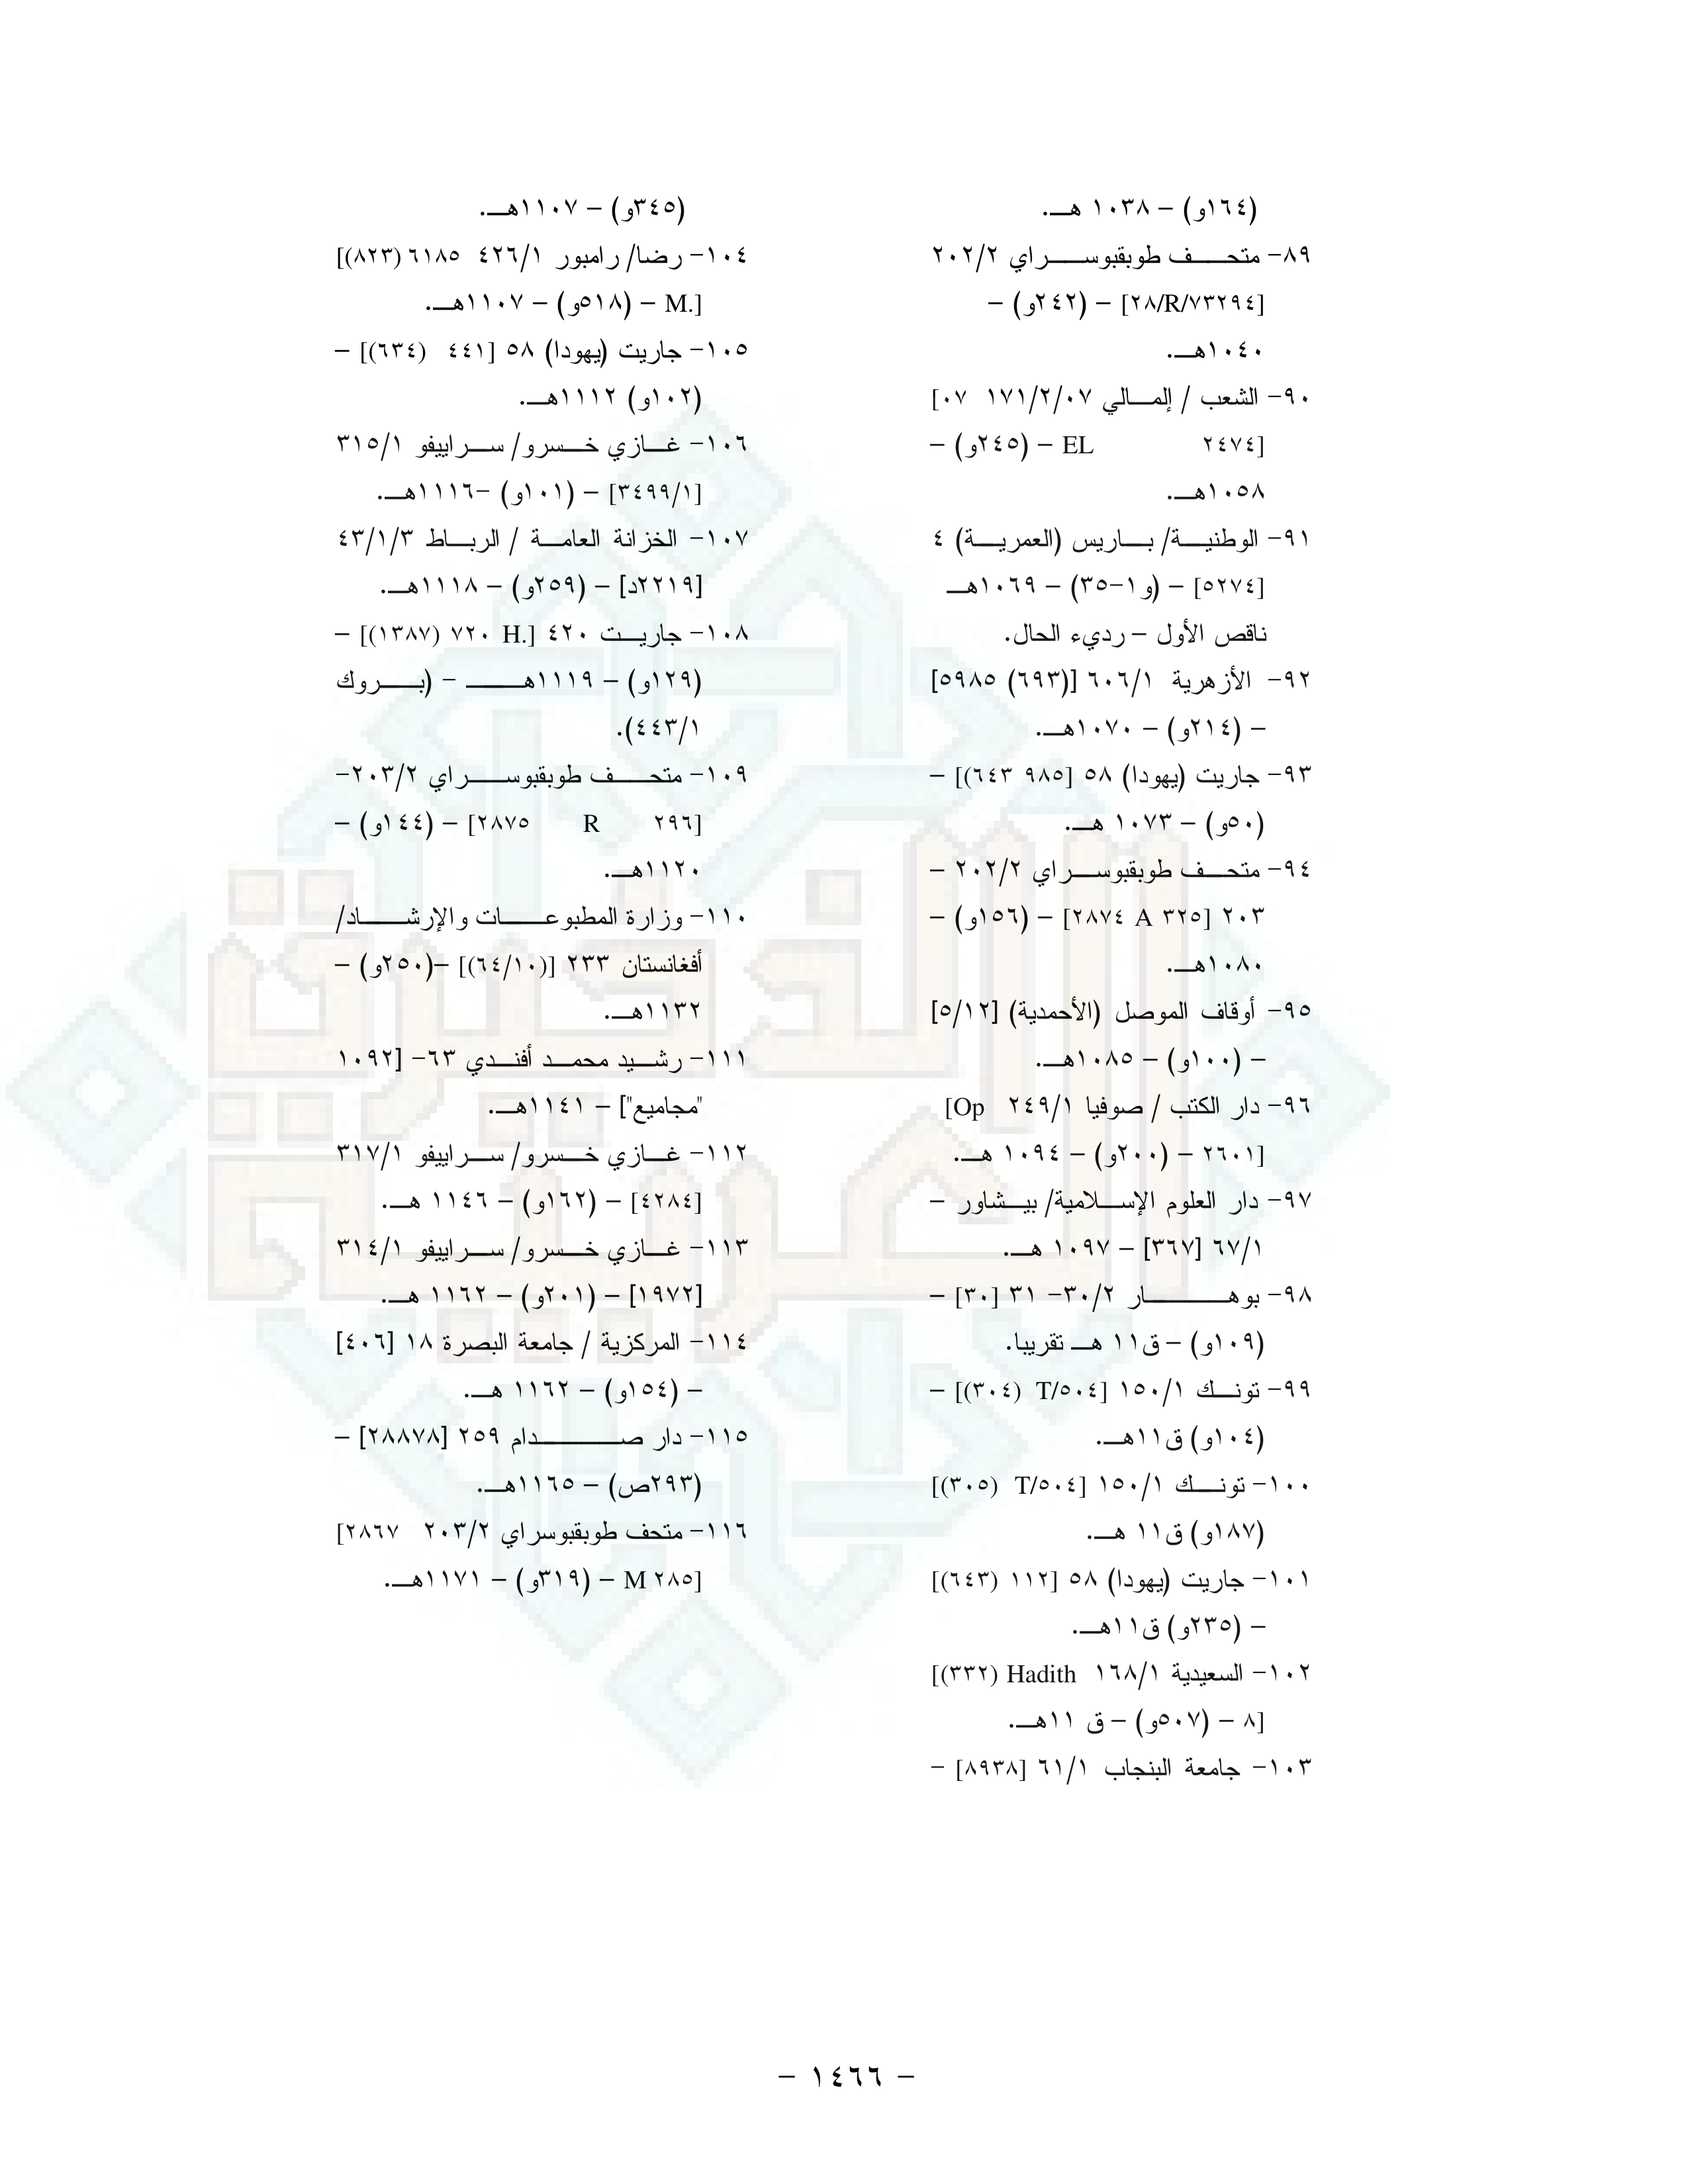 (١٦٤و) – ١٠٣٨ هـ.
٨٩- متحف طوبقبوسراي ٢٠٢/٢
[٢٨/R/٧٣٢٩٤] – (٢٤٢و) –
١٠٤٠هـ.
٩٠- الشعب / إلمالي ١٧١/٢/٠٧ [٠٧
EL ٢٤٧٤] – (٢٤٥و) –
١٠٥٨هـ.
٩١- الوطنية/ باريس (العمرية) ٤
[٥٢٧٤] – (و١-٣٥) – ١٠٦٩هـ
ناقص الأول – رديء الحال.
٩٢- الأزهرية ٦٠٦/١ [(٦٩٣) ٥٩٨٥]
– (٢١٤و) – ١٠٧٠هـ.
٩٣- جاريت (يهودا) ٥٨ [٩٨٥ ٦٤٣)] –
(٥٠و) – ١٠٧٣ هـ.
٩٤- متحف طوبقبوسراي ٢٠٢/٢ –
٢٠٣ [٢٨٧٤ A ٣٢٥] – (١٥٦و) –
١٠٨٠هـ.
٩٥- أوقاف الموصل (الأحمدية) [٥/١٢]
– (١٠٠و) – ١٠٨٥هـ.
٩٦- دار الكتب / صوفيا ٢٤٩/١ [Op
٢٦٠١] – (٢٠٠و) – ١٠٩٤ هـ.
٩٧- دار العلوم الإسلامية/ بيشاور –
٦٧/١ [٣٦٧] – ١٠٩٧ هـ.
٩٨- بوهار ٣٠/٢- ٣١ [٣٠] –
(١٠٩و) – ق١١ هـ تقريبا.
٩٩- تونك ١٥٠/١ [T/٥٠٤ (٣٠٤)] –
(١٠٤و) ق١١هـ.
١٠٠- تونك ١٥٠/١ [T/٥٠٤ (٣٠٥)]
(١٨٧و) ق١١ هـ.
١٠١- جاريت (يهودا) ٥٨ [١١٢ (٦٤٣)]
– (٢٣٥و) ق١١هـ.
١٠٢- السعيدية ١٦٨/١ [(٣٣٢) Hadith
٨] – (٥٠٧و) – ق ١١هـ.
١٠٣- جامعة البنجاب ٦١/١ [٨٩٣٨] –
(٣٤٥و) – ١١٠٧هـ.
١٠٤- رضا/ رامبور ٤٢٦/١ [(٨٢٣) ٦١٨٥
M.] – (٥١٨و) – ١١٠٧هـ.
١٠٥- جاريت (يهودا) ٥٨ [٤٤١ (٦٣٤)] –
(١٠٢و) ١١١٢هـ.
١٠٦- غازي خسرو/ سراييفو ٣١٥/١
[٣٤٩٩/١] – (١٠١و) -١١١٦هـ.
١٠٧- الخزانة العامة / الرباط ٤٣/١/٣
[٢٢١٩د] – (٢٥٩و) – ١١١٨هـ.
١٠٨- جاريت ٤٢٠ [H. ٧٢٠ (١٣٨٧)] –
(١٢٩و) – ١١١٩هـ - (بروك
٤٤٣/١).
١٠٩- متحف طوبقبوسراي ٢٠٣/٢-
[٢٨٧٥ R ٢٩٦] – (١٤٤و) –
١١٢٠هـ.
١١٠- وزارة المطبوعات والإرشاد/
أفغانستان ٢٣٣ [(٦٤/١٠)] –(٢٥٠و) –
١١٣٢هـ.
١١١- رشيد محمد أفندي ٦٣- [١٠٩٢
"مجاميع"] – ١١٤١هـ.
١١٢- غازي خسرو/ سراييفو ٣١٧/١
[٤٢٨٤] – (١٦٢و) – ١١٤٦ هـ.
١١٣- غازي خسرو/ سراييفو ٣١٤/١
[١٩٧٢] – (٢٠١و) – ١١٦٢ هـ.
١١٤- المركزية / جامعة البصرة ١٨ [٤٠٦]
– (١٥٤و) – ١١٦٢ هـ.
١١٥- دار صدام ٢٥٩ [٢٨٨٧٨] –
(٢٩٣ص) – ١١٦٥هـ.
١١٦- متحف طوبقبوسراي ٢٠٣/٢ [٢٨٦٧
M ٢٨٥] – (٣١٩و) – ١١٧١هـ.
– ١٤٦٦ –